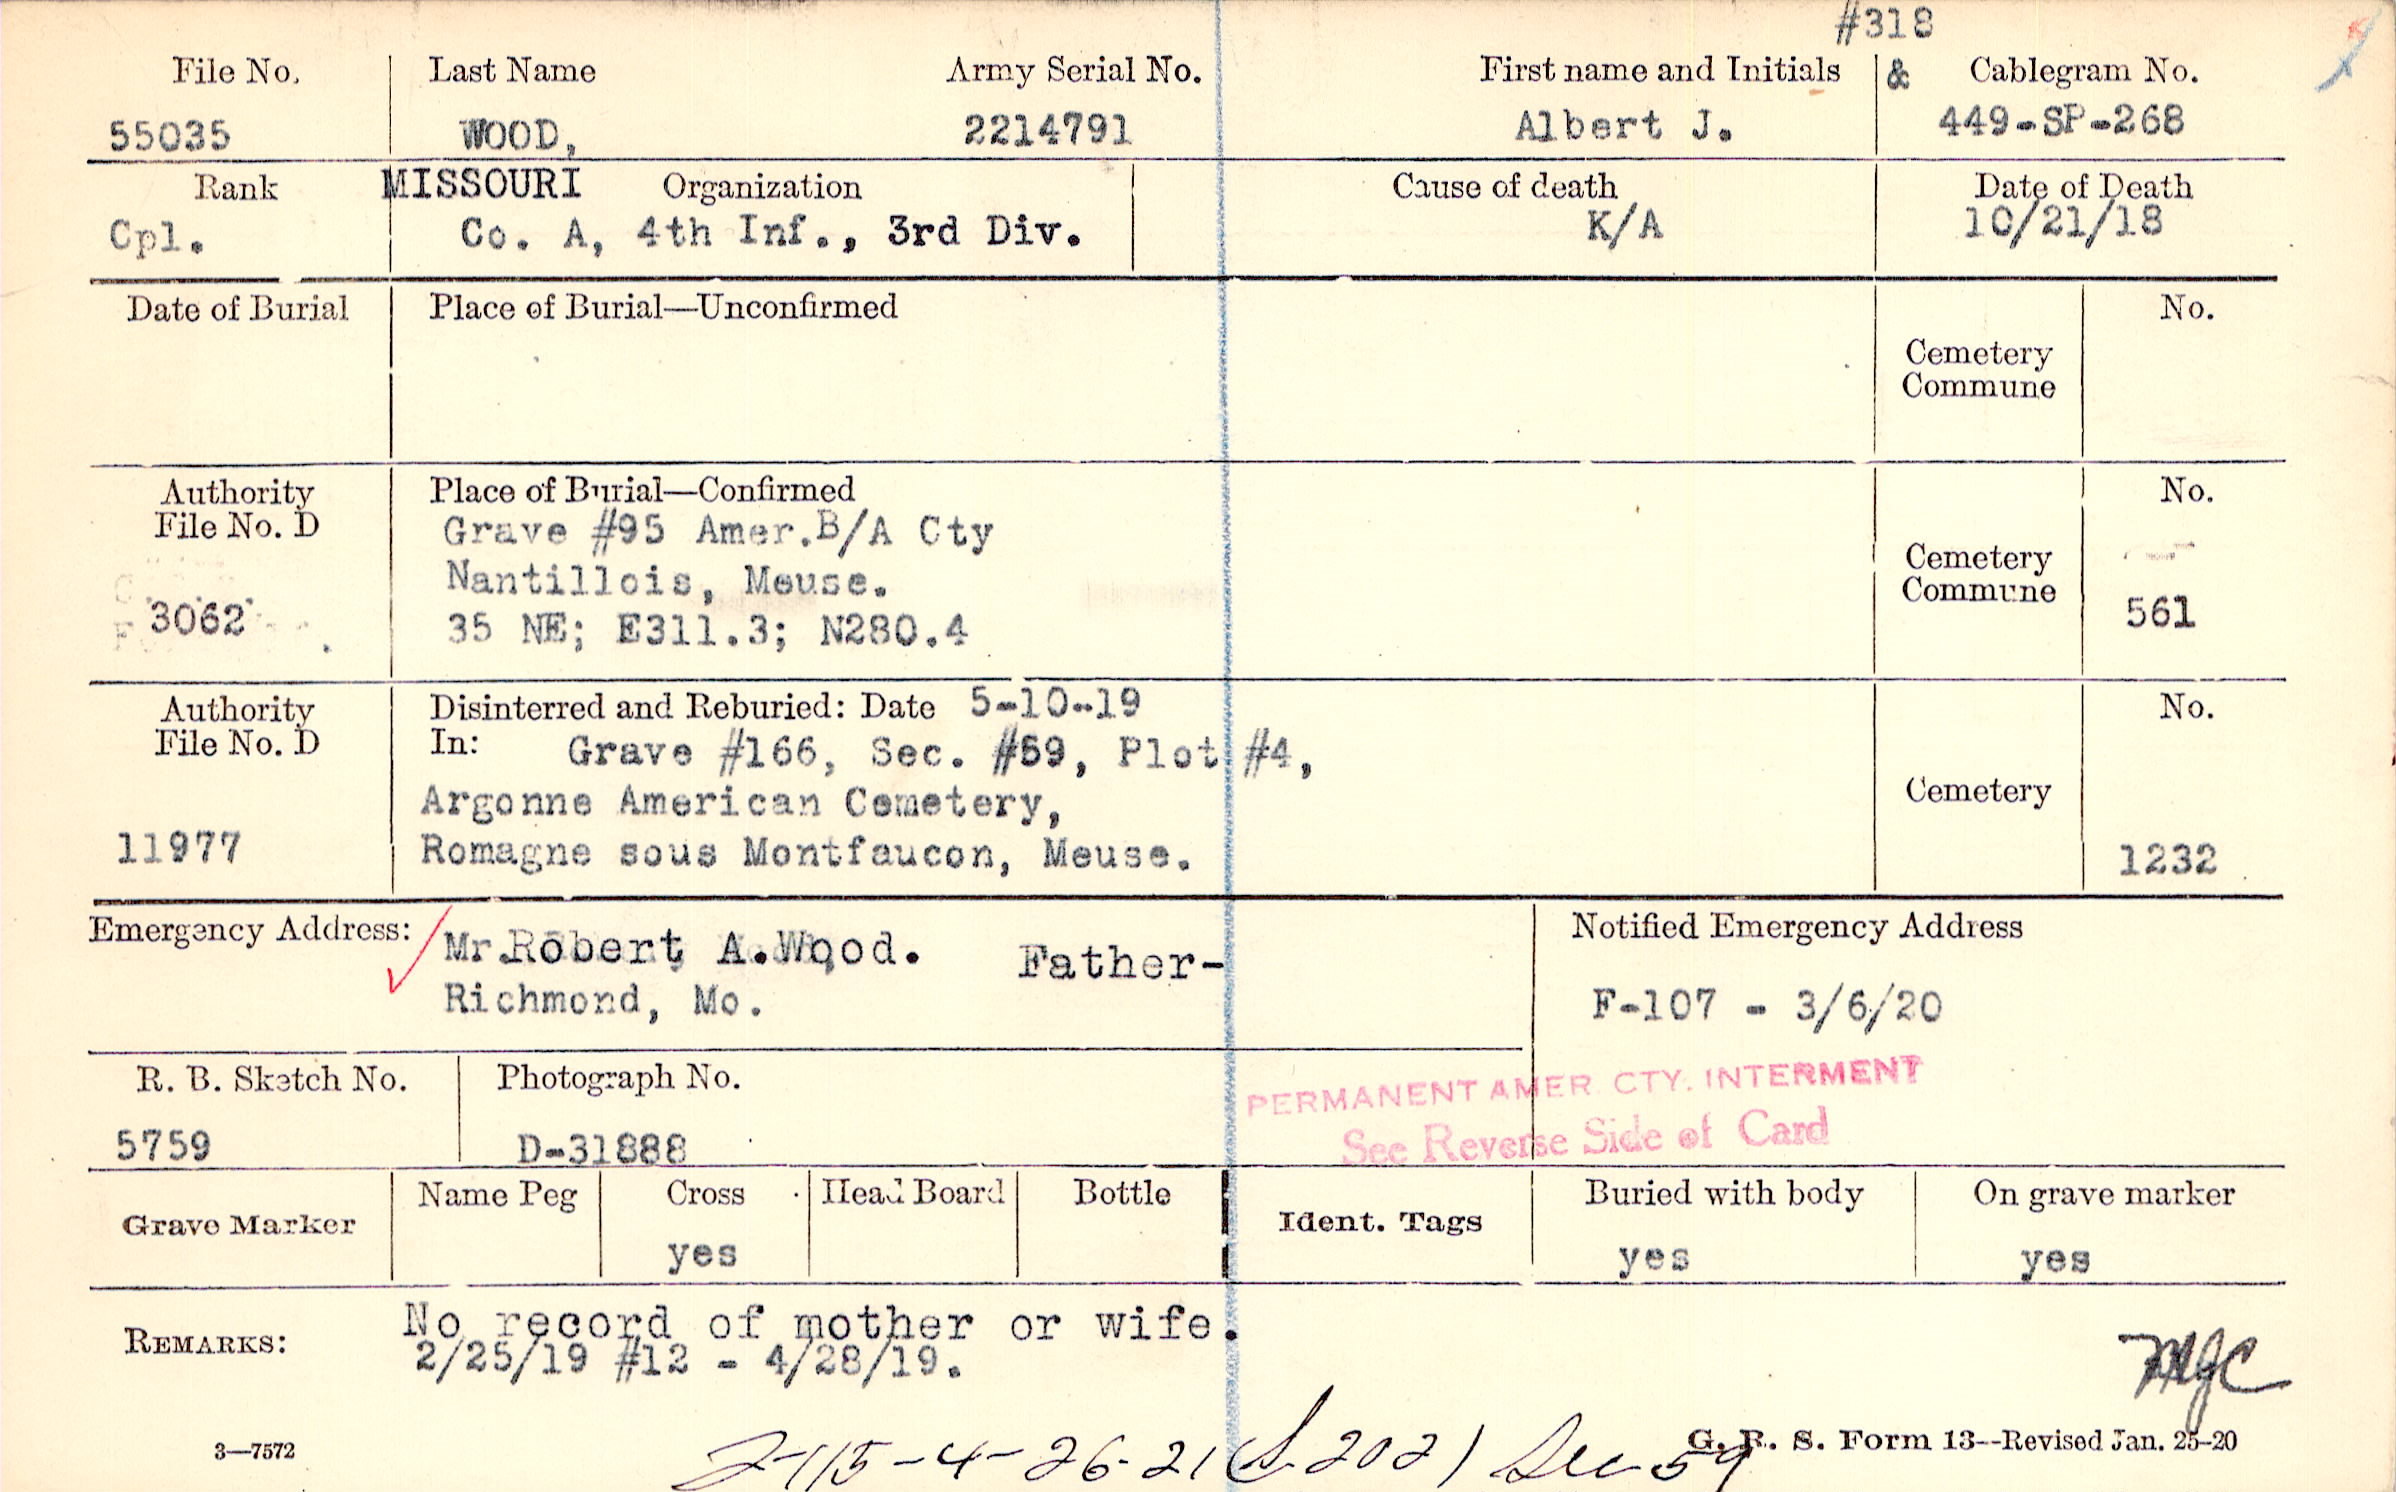 #318
File No. Last Name Army Serial No. First name and Initials & Cablegram No.
55035 WOOD, 2214791 Albert J. 449-SP-268
Rank MISSOURI Organization Cause of death Date of Death
Cpl. Co. A, 4th Inf., 3rd Div. K/A 10/21/18
Date of Burial Place of Burial—Unconfirmed No.
Cemetery
Commune
Authority Place of Burial—Confirmed No.
File No. D Grave #95 Amer.B/A Cty
Nantillois, Meuse. Cemetery
Commune
3062 35 NE; E311.3; N280.4 561
Authority Disinterred and Reburied: Date 5-10-19 No.
File No. D In: Grave #166, Sec. #59, Plot #4,
Argonne American Cemetery, Cemetery
11977 Romagne sous Montfaucon, Meuse. 1232
Emergency Address: Mr.Robert A.Wood. Father- Notified Emergency Address
Richmond, Mo. F-107 - 3/6/20
R. B. Sketch No. Photograph No. PERMANENT AMER. CTY. INTERMENT
5759 D-31888 See Reverse Side of Card
Grave Marker Name Peg Cross Head Board Bottle Ident. Tags Buried with body On grave marker
yes yes yes
REMARKS: No record of mother or wife.
2/25/19 #12 - 4/28/19.
MJC
3—7572 G. R. S. Form 13--Revised Jan. 25-20
2-115-4-26-21 (S-202) Sec 59